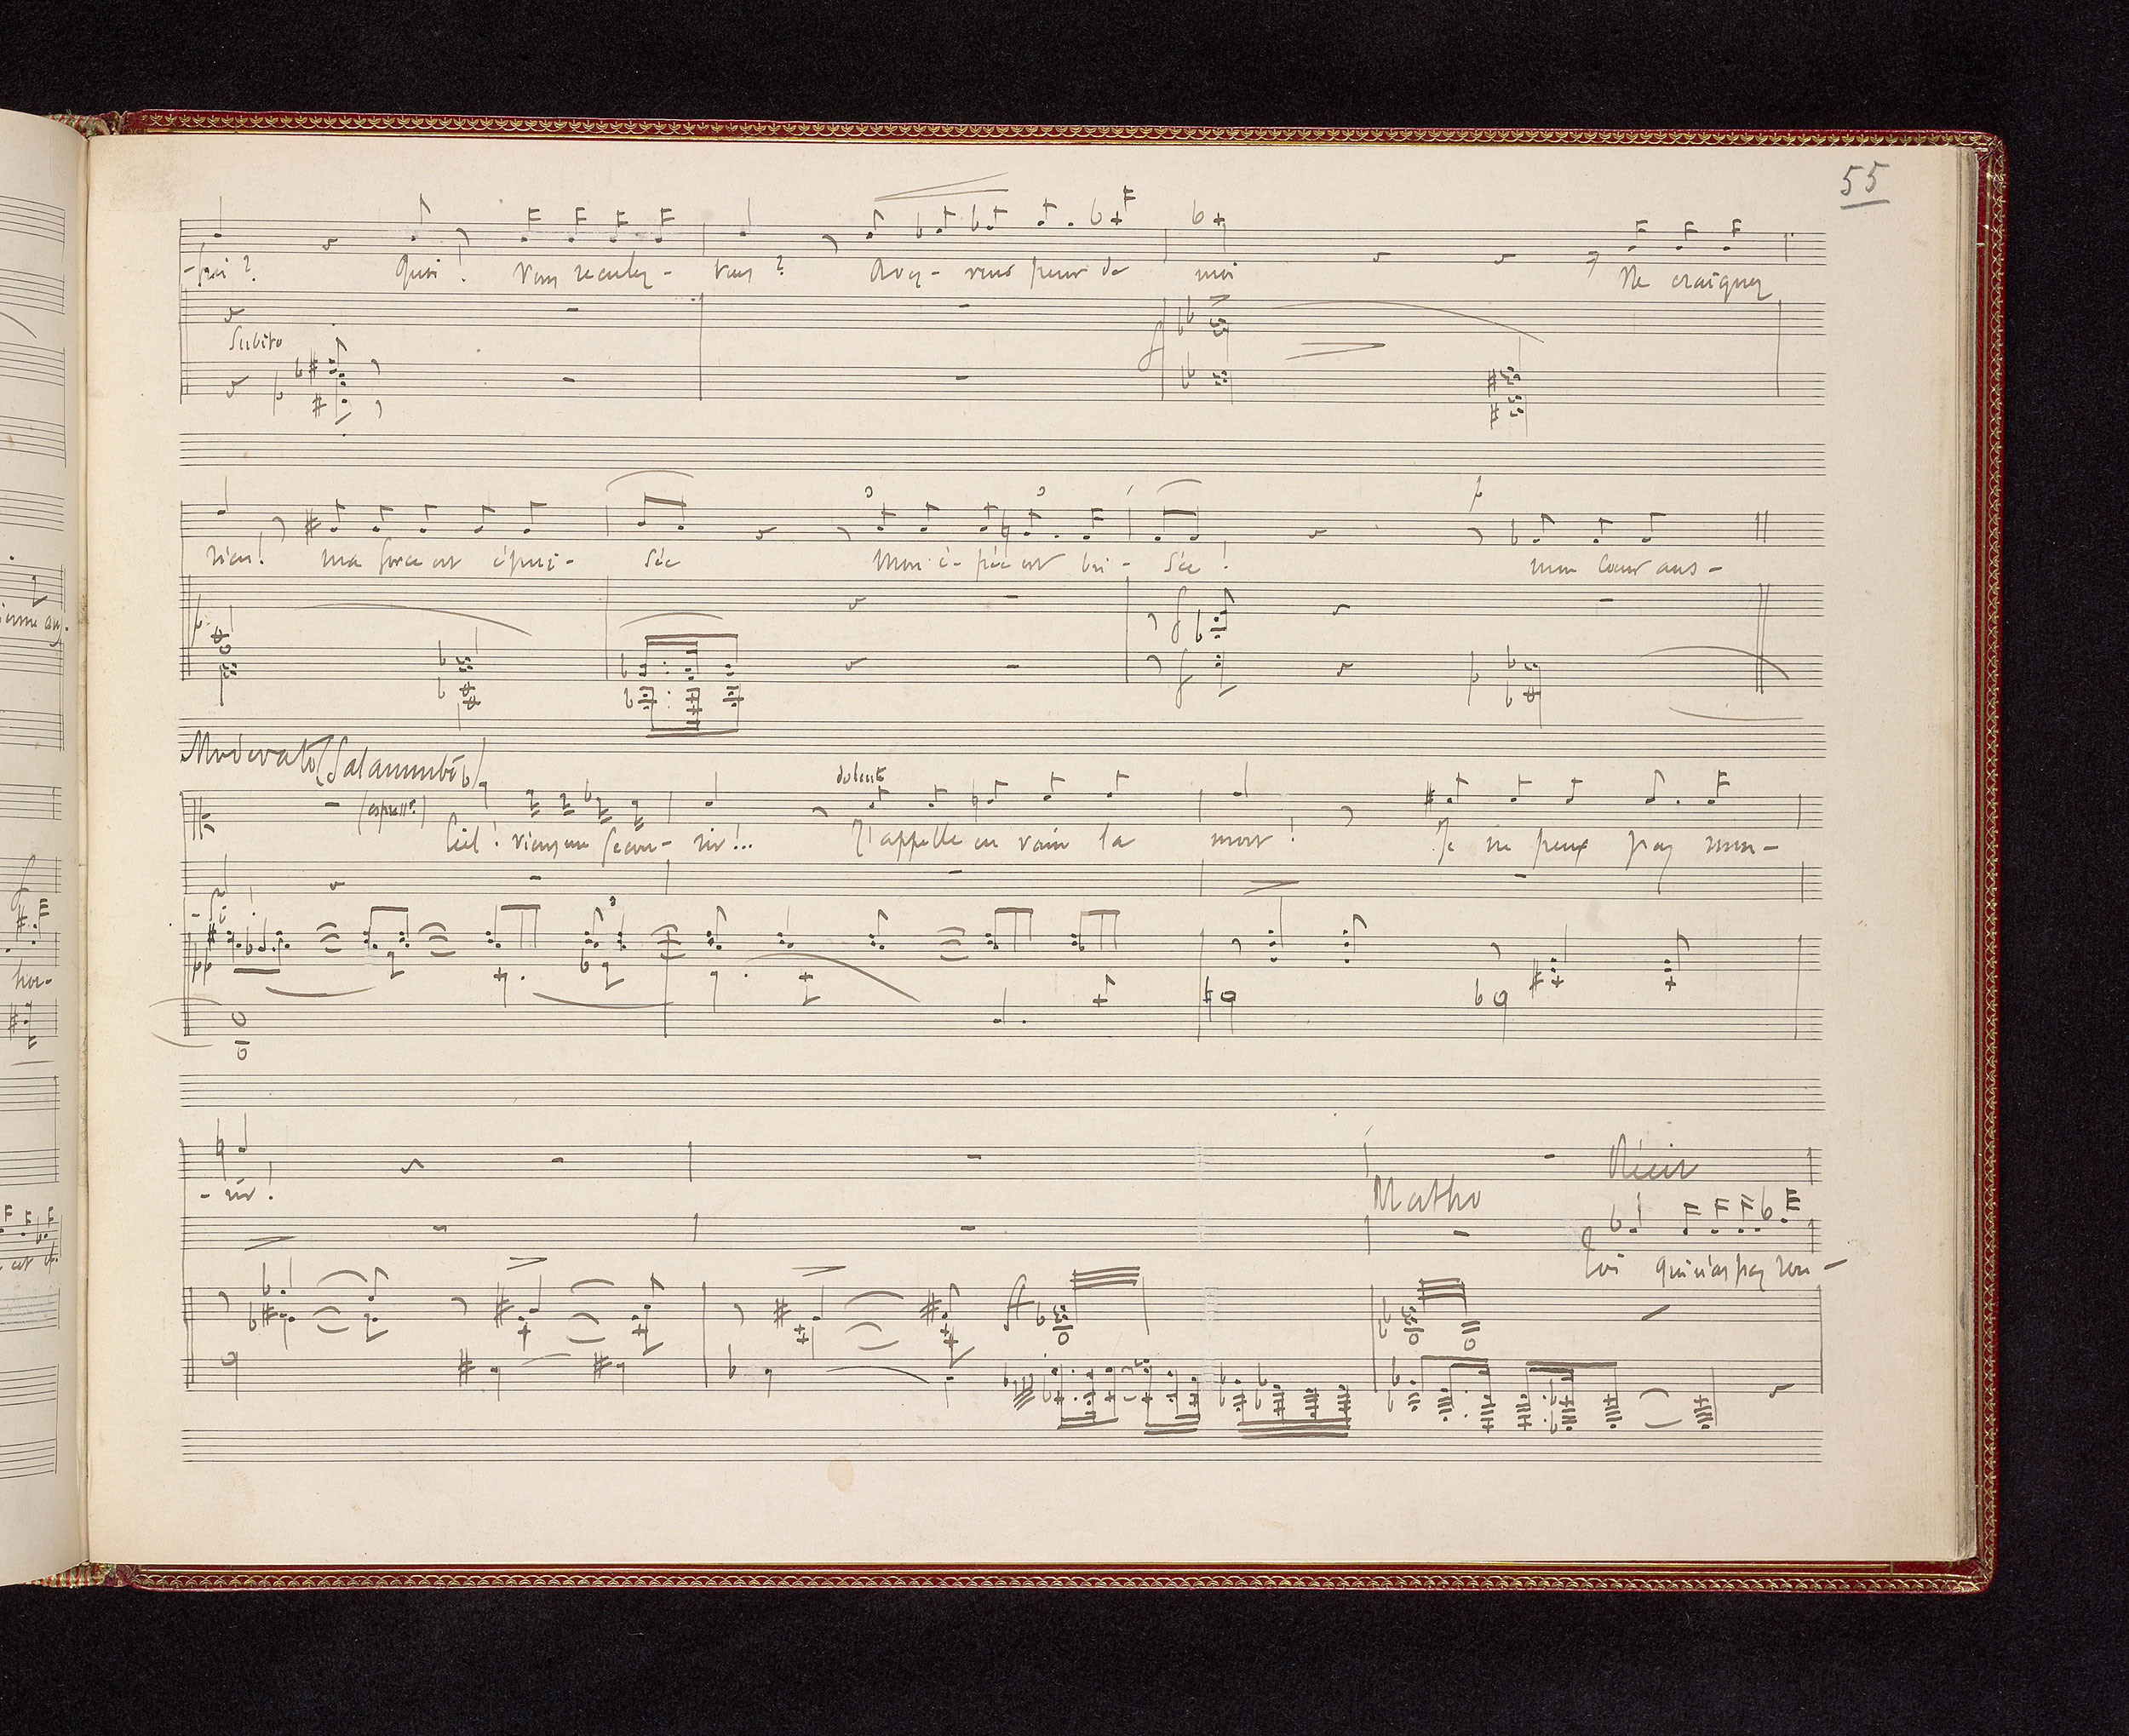 55
-fui? Quoi! Vous reculez- vous? Avez-vous peur de moi Ne craignez
Subito
f
rien! ma force est épui- sée Mon é-pée est bri- sée! mon cœur aus-
3 3 p
p f f p
Moderato (Salammbô)
(espress.) dolente
Ciel! viens me secou- rir!... J'appelle en vain la mort! Je ne peux pas mou-
3
pp
- rir!
Récit
Matho
Toi qui n'as pas vou-
ff